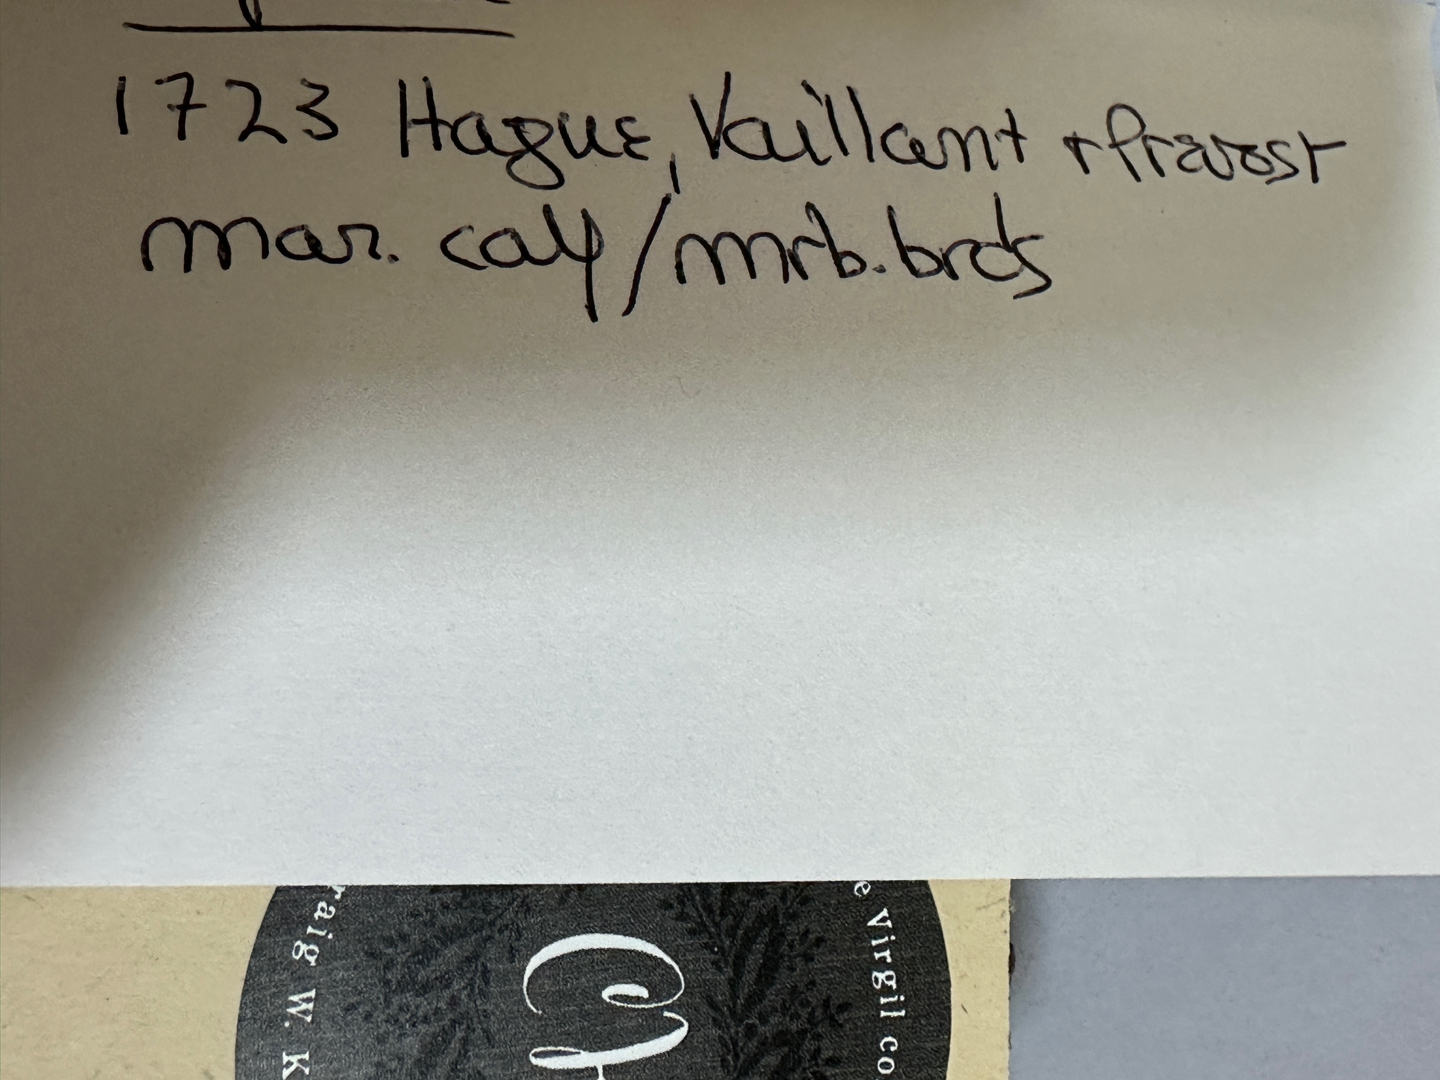 1723 Hague, Vaillant + Prevost
mar. calf/mrb. brds
raig W. K
e Virgil co